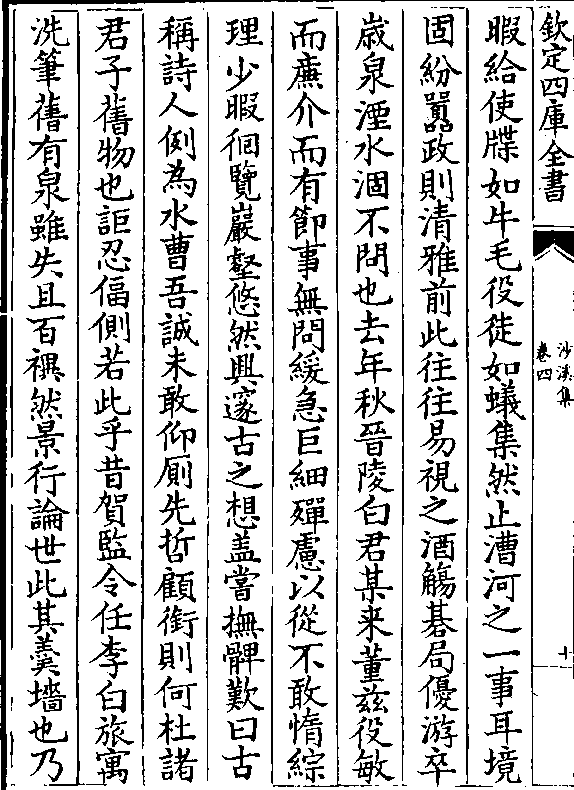 欽定四庫全書
沙溪集
卷四
十
暇給使牒如牛毛役徒如蟻集然止漕河之一事耳境
固紛囂政則清雅前此往往易視之酒觴碁局優游卒
歳泉湮水涸不問也去年秋晉陵白君某来董兹役敏
而亷介而有節事無問緩急巨細殫慮以從不敢惰綜
理少暇徊覽巖壑悠然興邃古之想盖嘗撫髀歎曰古
稱詩人例為水曹吾誠未敢仰厠先哲顧銜則何杜諸
君子舊物也詎忍偪側若此乎昔賀監令任李白旅寓
洗筆舊有泉雖失且百禩然景行論世此其羮墻也乃